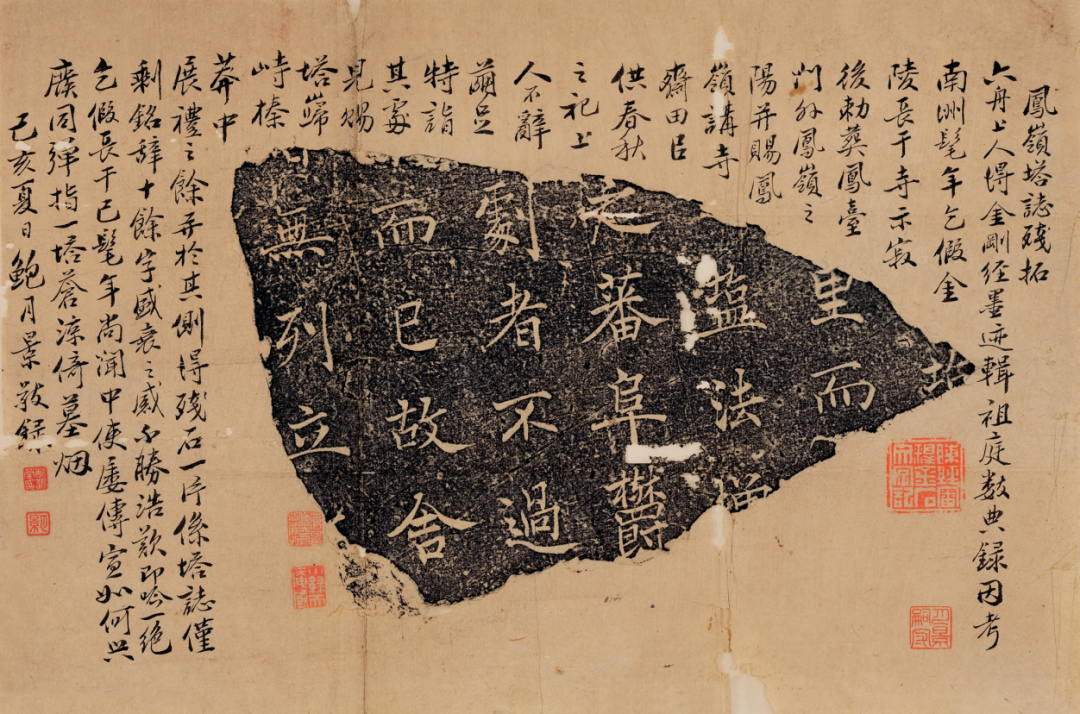 鳳嶺塔誌殘拓
六舟上人得金剛經墨迹輯祖庭数典録因考
南洲髦年乞假金
陵長干寺示寂
後勅葬鳳臺
門外鳳嶺之
陽并賜鳳
嶺講寺
齋田臣
供春秋
之祀上
人不辭
繭足
特詣
其處
見賜
塔巋
峙榛
莽中
展禮之餘并於其側得殘石一片係塔誌僅
剩銘辭十餘字盛衰之感不勝浩歎即唫一絶
乞假長干已髦年尚聞中使屢傳宣如何興
廢同彈指一塔蒼涼倚墓烟
己亥夏日鮑月景敬録
里而
濫法
蕃阜欝
劇者不過
而已故舍
無列立